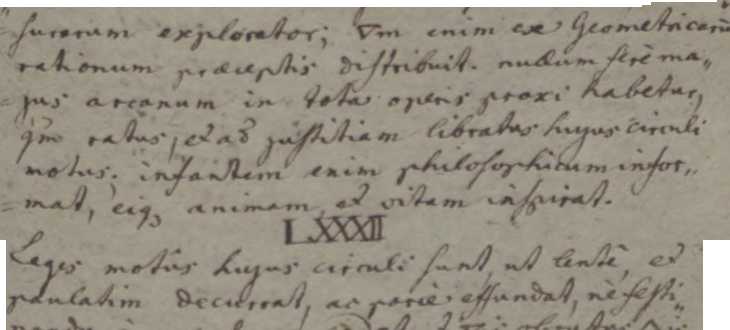 surarum explorator; Vm enim exe Geometricarū
rationum præceptis distribuit. nullum ferè ma„
jus arcanum in tota operis praxi habetur,
qm̄ ratus, et ad justitiam libratus hujus circuli
motus; infantem enim philosophicum infor„
mat, eiq; animam et vitam inspirat.
LXXXII
Leges motûs hujus circuli sunt, ut lentè, et
paulatim decurrat, ac parcè effundat, nè festi„